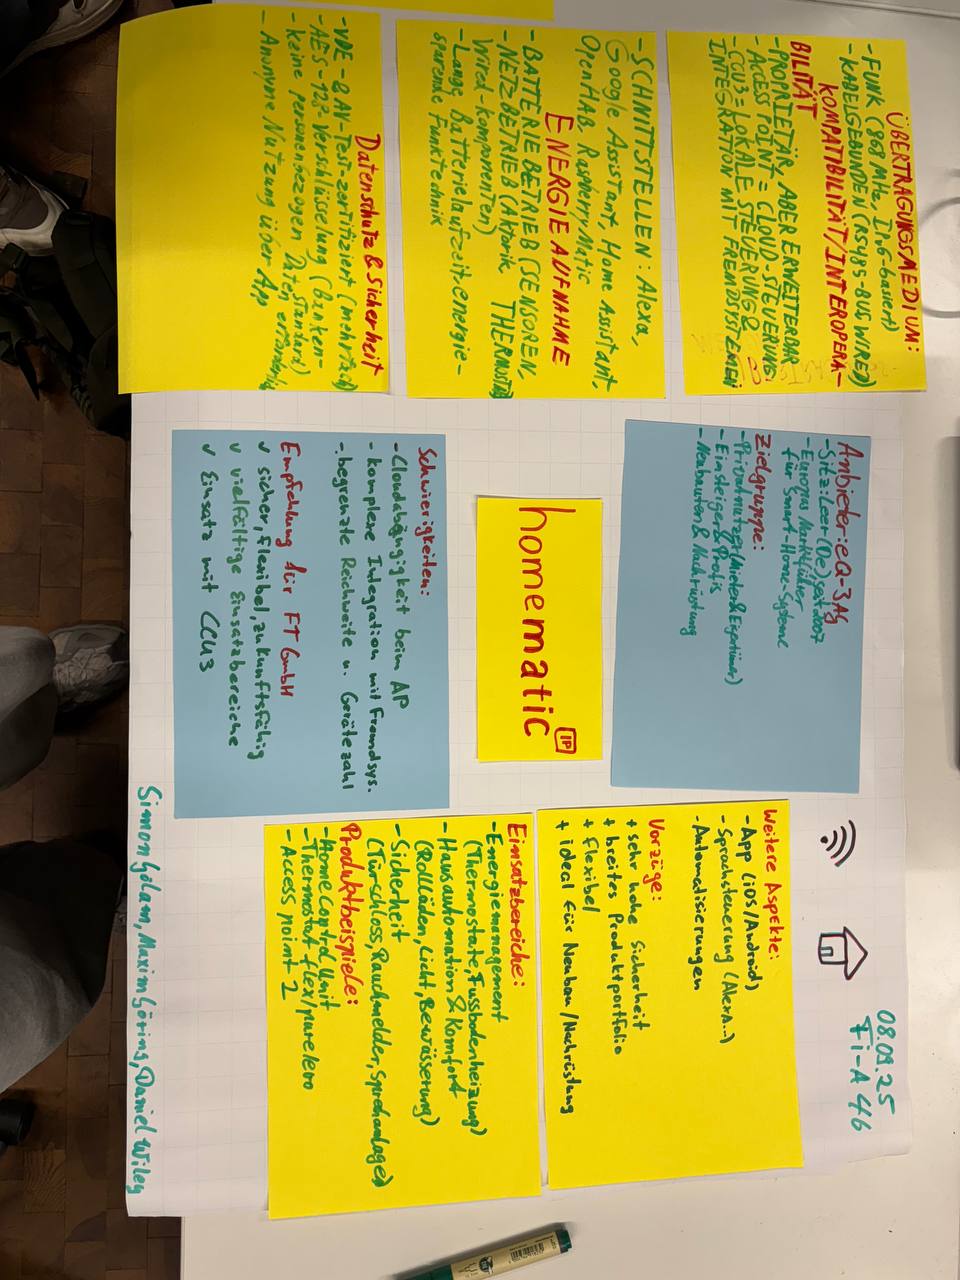 ÜBERTRAGUNGSMEDIUM:
- FUNK (868 MHz, IPv6-basiert)
- KABELGEBUNDEN (RS485-BUS WIRED)
KOMPATIBILITÄT/INTEROPERA-
BILITÄT
- PROPRIETÄR, ABER ERWEITERBAR
- ACCESS POINT = CLOUD-STEUERUNG
- CCU3 = LOKALE STEUERUNG &
INTEGRATION MIT FREMDSYSTEMEN
- SCHNITTSTELLEN: Alexa,
Google Assistant, Home Assistant,
OpenHAB, RaspberryMatic
ENERGIEAUFNAHME
- BATTERIEBETRIEB (SENSOREN,
- NETZBETRIEB (Aktorik, THERMOSTATE)
Wired-Komponenten)
- Lange Batterielaufzeit energie-
sparende Funktechnik
Datenschutz & Sicherheit
- VDE- & AV-Test-zertifiziert (mehrfach)
- AES-128-Verschlüsselung (Banken-
standard)
- keine personenbezogen Daten erforderlich
- Anonyme Nutzung über App
Anbieter: eQ-3 AG
- Sitz: Leer (De) seit 2007
- Europas Marktführer
für Smart-Home-Systeme
Zielgruppe:
- Privatnutzer (Mieter & Eigentümer)
- Einsteiger & Profis
- Neubauten & Nachrüstung
homematic IP
Schwierigkeiten:
- Cloudabhängigkeit beim AP
- komplexe Integration mit Fremdsys.
- begrenzte Reichweite u. Gerätezahl
Empfehlung für FT GmbH
✓ sicher, flexibel, zukunftsfähig
✓ vielfältige Einsatzbereiche
✓ Einsatz mit CCU3
08.09.25
Fi-A 46
Weitere Aspekte:
- App (iOS/Android)
- Sprachsteuerung (Alexa..)
- Automatisierungen
Vorzüge:
+ sehr hohe Sicherheit
+ breites Produktportfolio
+ flexibel
+ ideal für Neubau/Nachrüstung
Einsatzbereiche:
- Energiemanagement
(Thermostate, Fussbodenheizung)
- Hausautomation & Komfort
(Rollläden, Licht, Bewässerung)
- Sicherheit
(Türschloss, Rauchmelder, Sprechanlage)
Produktbeispiele:
- Home Control Unit
- Thermostat flex/pure/evo
- Access point 2
Simon Golam, Maxim Görins, Daniel Wiley